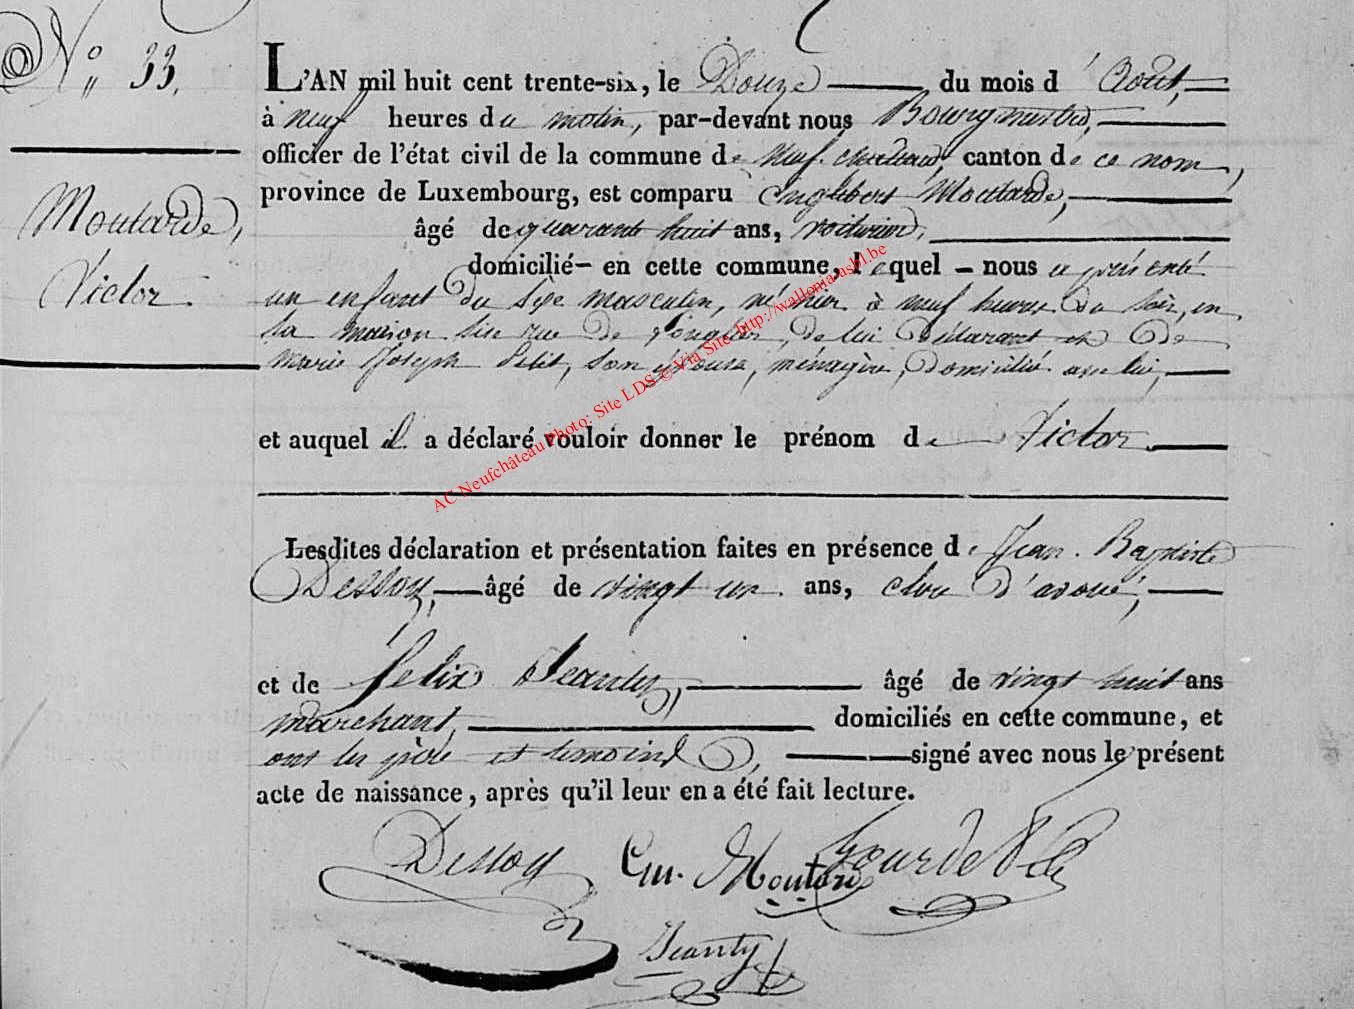 N° 33.
Moutarde,
Victor.
L'AN mil huit cent trente-six, le Douze du mois d' Août,
à neuf heures du matin, par-devant nous Bourgmestre,
officier de l'état civil de la commune de Neufchateau, canton de ce nom,
province de Luxembourg, est comparu Englebert Moutarde,
âgé de quarante huit ans, voiturier,
domicilié en cette commune, lequel nous a présenté
un enfant du sexe masculin, né hier à neuf heures du soir, en
sa maison sise rue de, de lui déclarant et de
Marie Joseph Petit, son épouse, ménagère, domiciliée avec lui,
et auquel il a déclaré vouloir donner le prénom de Victor.
Lesdites déclaration et présentation faites en présence de Jean-Baptiste
Dessoy, âgé de vingt un ans, clerc d'avoué,
et de Felix Jeanty, âgé de vingt huit ans
marchant, domiciliés en cette commune, et
ont les père et temoins, signé avec nous le présent
acte de naissance, après qu'il leur en a été fait lecture.
Dessoy
En. Moutarde
Jeanty
AC Neufchâteau Photo: Site LDS © Via Site http://wallonia-asbl.be